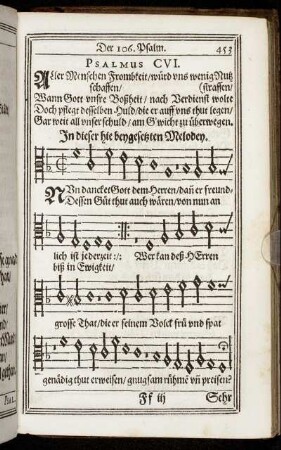 Der 106. Psalm. 453
PSALMUS CVI.
ALler Menschen Fromkeit/ würd vns wenig Nutz
schaffen/ (straffen/
Wann Gott vnsre Boßheit/ nach Verdienst wolte
Doch pflegt desselben Huld/ die er auff vns thut legen/
Gar weit all vnser schuld/ am G'wicht zu überwegen.
In dieser hie beygesetzten Melodey.
NVn dancket Gott dem Herren/ dañ er freund,
Dessen Güt thut auch wären/ von nun an
lich ist jederzeit :/: Wer kan deß HErren
biß in Ewigkeit/
grosse That/ die er seinem Volck frü vnd spat
genädig thut erweisen/ gnugsam rühmē vñ preisen?
Ff iij Sehr